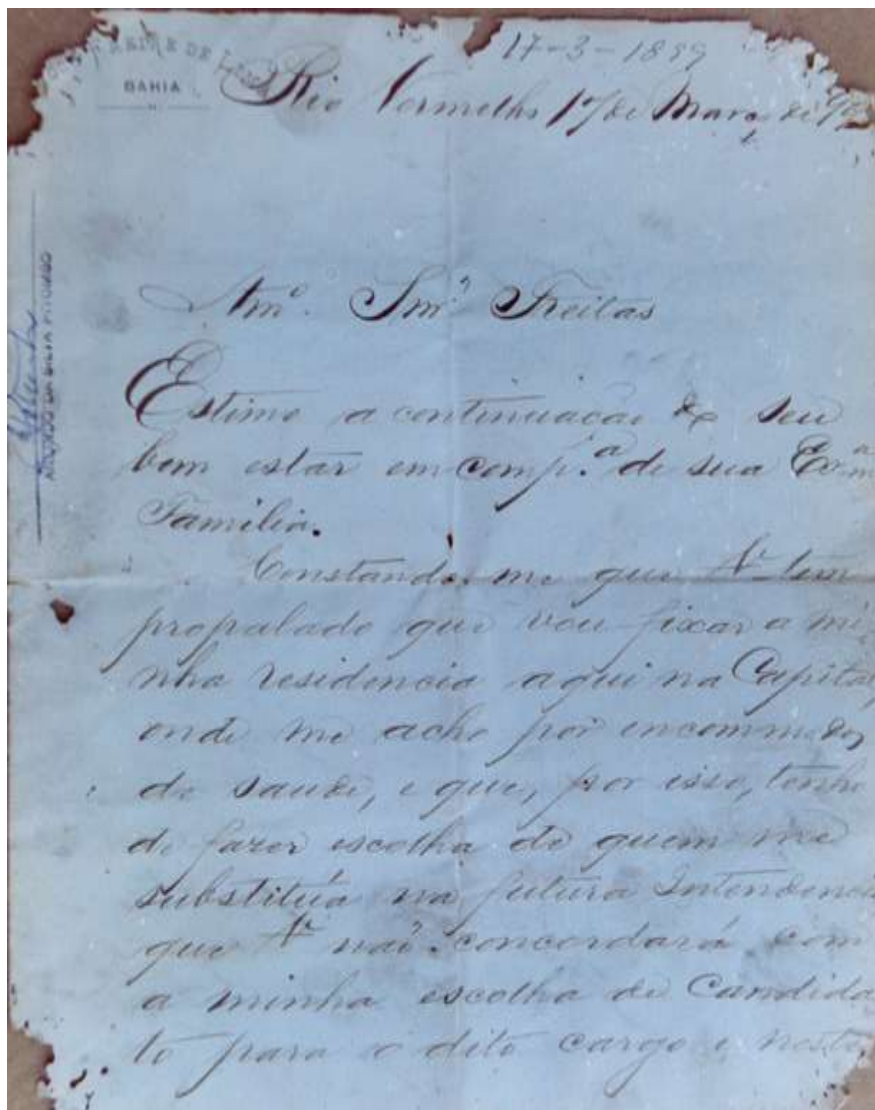 17-3-1899
FREIRE DE
BAHIA
Rio Vermelho 17 de Març de 99
Amº. Snr. Freitas
Estimo a continuação de seu
bem estar em comp.ª de sua Exmª
Familia.
Constando-me que Vc tem
propalado que vou fixar a mi
nha residencia aqui na Capital,
onde me acho por encommodos
de saude, e que, por isso, tenho
de fazer escolha de quem me
substitúa na futura Intendencia
que Vc não concordará com
a minha escolha de Candida
to para o dito cargo e, nesta